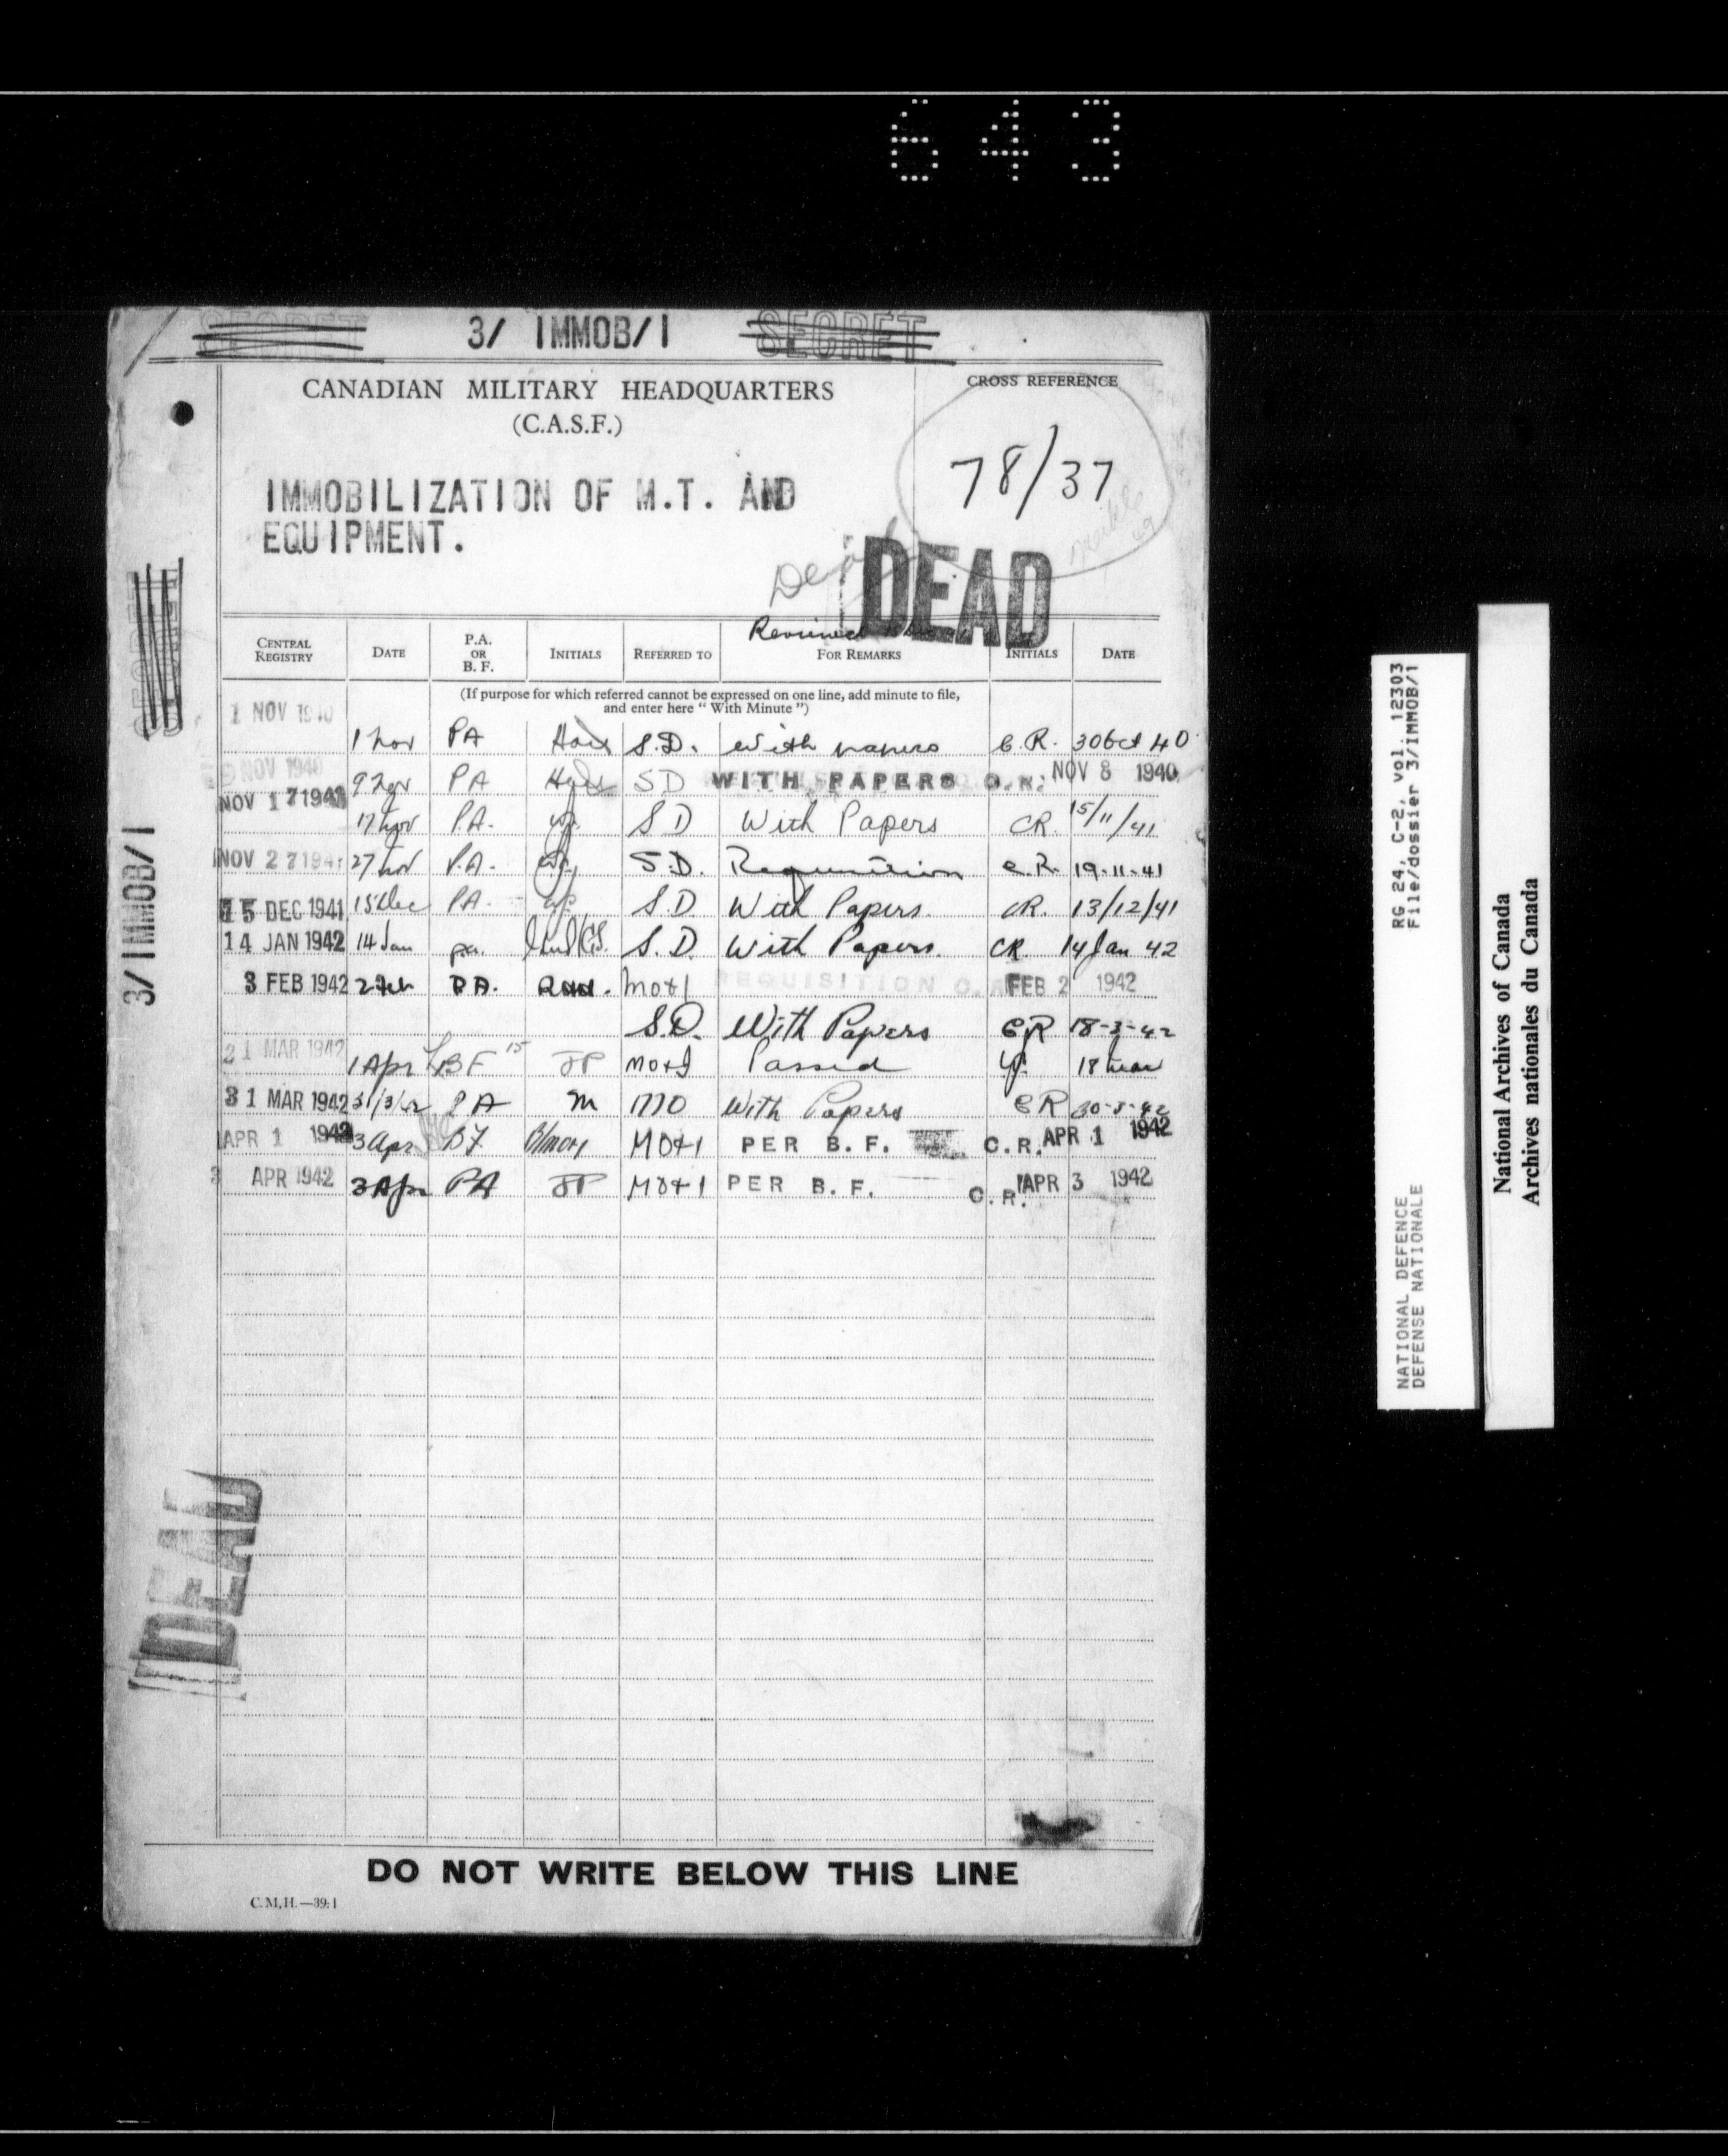 643
SECRET 3/ IMMOB/1 SECRET
CANADIAN MILITARY HEADQUARTERS
(C.A.S.F.)
CROSS REFERENCE
78/37
IMMOBILIZATION OF M.T. AND
EQUIPMENT.
Dead
DEAD
CENTRAL REGISTRY DATE P.A. OR B. F. INITIALS REFERRED TO FOR REMARKS INITIALS DATE
(If purpose for which referred cannot be expressed on one line, add minute to file,
and enter here "With Minute")
1 NOV 1940
1 Nov PA S.D. With papers C.R. 30 Oct 40
NOV 1940 9 Nov PA SD WITH PAPERS C.R. NOV 8 1940
NOV 17 1941 17 Nov P.A. SD With Papers CR. 15/11/41
NOV 27 1941 27 Nov P.A. S.D. Requisition C.R. 19-11-41
15 DEC 1941 15 Dec PA. S.D With Papers. CR. 13/12/41
14 JAN 1942 14 Jan pa. S.D. With Papers. CR. 14 Jan 42
3 FEB 1942 2 Feb P.A. MO+I REQUISITION C. FEB 2 1942
S.D. With Papers CR 18-3-42
21 MAR 1942 1 Apr BF 15 JP MO+I Passed 18 Mar
31 MAR 1942 31/3/42 PA M MO With Papers CR 30-3-42
APR 1 1942 3 Apr BF MO+I PER B. F. C.R. APR 1 1942
3 APR 1942 3 Apr PA JP MO+I PER B. F. C.R. APR 3 1942
SECRET
3/IMMOB/1
DEAD
DO NOT WRITE BELOW THIS LINE
C.M.H.—39:1
RG 24, C-2, vol. 12303
File/dossier 3/IMMOB/1
NATIONAL DEFENCE
DEFENSE NATIONALE
National Archives of Canada
Archives nationales du Canada